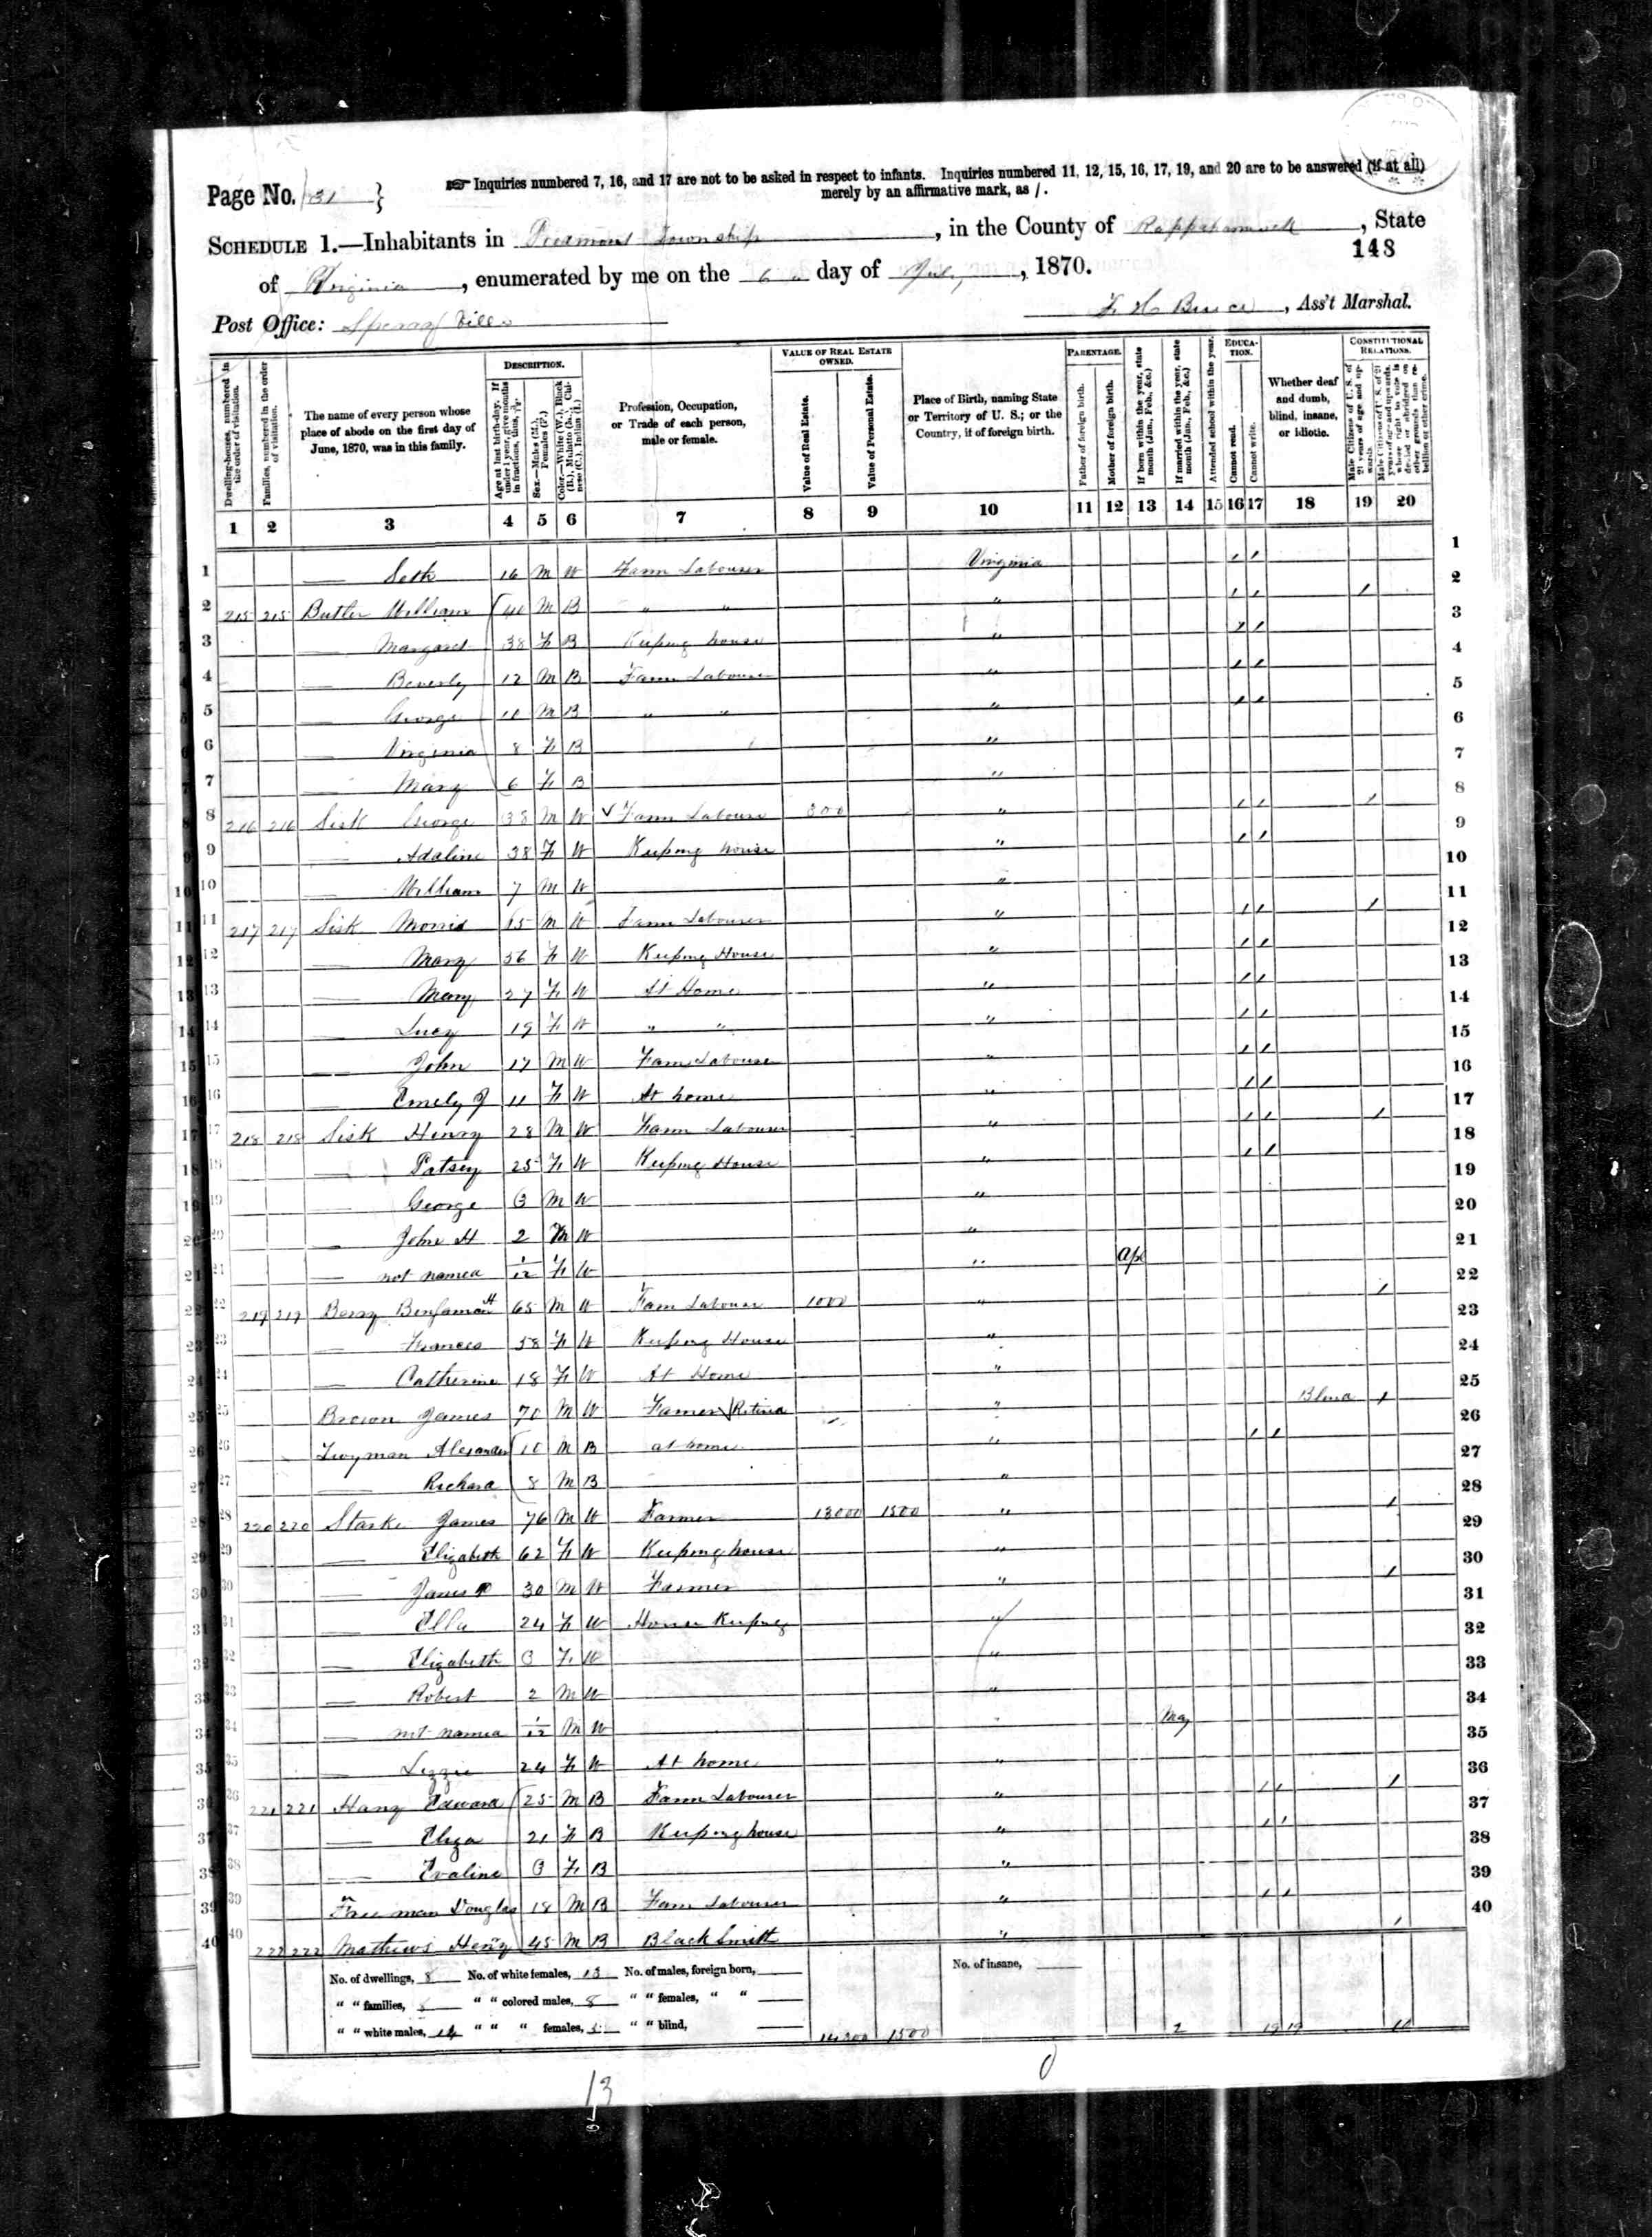 Page No. 31 }
☞ Inquiries numbered 7, 16, and 17 are not to be asked in respect to infants. Inquiries numbered 11, 12, 15, 16, 17, 19, and 20 are to be answered (if at all)
merely by an affirmative mark, as /.
SCHEDULE 1.—Inhabitants in Piedmont Township, in the County of Rappahannock, State
143
of Virginia, enumerated by me on the 6 day of , 1870.
Post Office: Sperryville
F H Bruce, Ass't Marshal.
Dwelling-houses, numbered in the order of visitation.
Families, numbered in the order of visitation.
The name of every person whose place of abode on the first day of June, 1870, was in this family.
DESCRIPTION.
Age at last birth-day. If under 1 year, give months in fractions, thus, 3/12
Sex.—Males (M.), Females (F.)
Color.—White (W.), Black (B.), Mulatto (M.), Chinese (C.), Indian (I.)
Profession, Occupation, or Trade of each person, male or female.
VALUE OF REAL ESTATE OWNED.
Value of Real Estate.
Value of Personal Estate.
Place of Birth, naming State or Territory of U. S.; or the Country, if of foreign birth.
PARENTAGE.
Father of foreign birth.
Mother of foreign birth.
If born within the year, state month (Jan., Feb., &c.)
If married within the year, state month (Jan., Feb., &c.)
Attended school within the year.
EDUCATION.
Cannot read.
Cannot write.
Whether deaf and dumb, blind, insane, or idiotic.
CONSTITUTIONAL RELATIONS.
Male Citizens of U. S. of 21 years of age and upwards.
Male Citizens of U. S. of 21 years of age and upwards, where right to vote is denied or abridged on other grounds than rebellion or other crime.
1 2 3 4 5 6 7 8 9 10 11 12 13 14 15 16 17 18 19 20
1 — Seth 16 M W Farm Labourer Virginia / / 1
2 215 215 Butler William 40 M B " " " / / / 2
3 — Margaret 38 F B Keeping house " / / 3
4 — Beverly 12 M B Farm Labourer " / / 4
5 — George 10 M B " " " / / 5
6 — Virginia 8 F B " 6
7 — Mary 6 F B " 7
8 216 216 Sisk George 38 M W Farm Labourer 300 " / / / 8
9 — Adaline 38 F W Keeping house " / / 9
10 — William 7 M W " 10
11 217 217 Sisk Morris 65 M W Farm Labourer " / / / 11
12 — Mary 56 F W Keeping House " / / 12
13 — Mary 27 F W At Home " / / 13
14 — Lucy 19 F W " " " / / 14
15 — John 17 M W Farm Labourer " / / 15
16 — Emely J 11 F W At home " / / 16
17 218 218 Sisk Henry 28 M W Farm Labourer " / / / 17
18 — Patsey 25 F W Keeping House " / / 18
19 — George 3 M W " 19
20 — John H 2 M W " 20
21 — not named 1/12 F W " Ap 21
22 219 219 Berry Benjamin H 65 M W Farm Labourer 1000 " / 22
23 — Frances 58 F W Keeping House " 23
24 — Catherine 18 F W At Home " 24
25 Brown James 70 M W Farmer Retired " Blind / 25
26 Twyman Alexander 10 M B at home " / / 26
27 — Richard 8 M B " 27
28 220 220 Starke James 76 M W Farmer 13000 1500 " / 28
29 — Elizabeth 62 F W Keeping house " 29
30 — James 30 M W Farmer " / 30
31 — Ella 24 F W House Keeping " 31
32 — Elizabeth 3 F W " 32
33 — Robert 2 M W " 33
34 — not named 1/12 M W " May 34
35 — Lizzie 24 F W At home " 35
36 221 221 Edward 25 M B Farm Labourer " / / / 36
37 — Eliza 21 F B Keeping house " / / 37
38 — Evaline 3 F B " 38
39 Freeman Douglas 18 M B Farm Labourer " / / 39
40 222 222 Mathews Henry 45 M B Black Smith " / 40
No. of dwellings, 8 No. of white females, 13 No. of males, foreign born, — No. of insane, —
" " families, 8 " " colored males, 8 " " females, " " —
" " white males, 14 " " " females, 5 " " blind, — 14300 1500 2 19 19 10
13